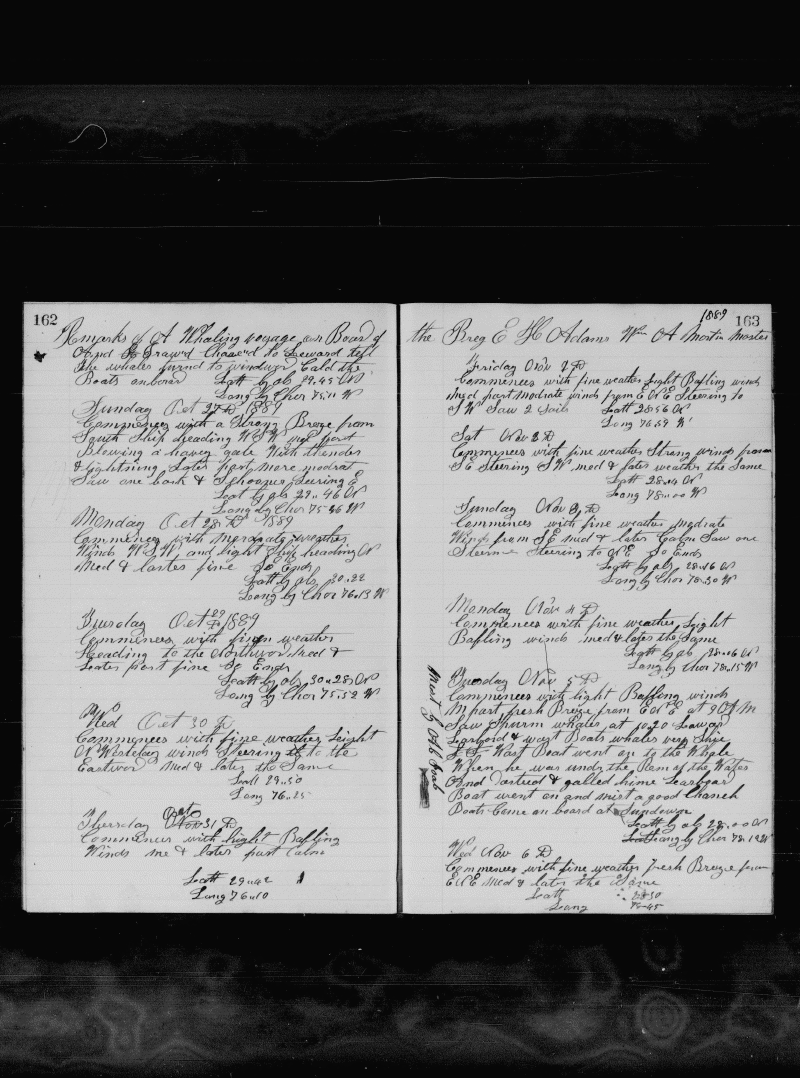 162
Remarks of A Whaling voyage on Board of
And Chaseed to Leward tell
the whales turnd to windwor Cald the
Boats onborad Latt by obs 29.45 N
Long by Chor 75.11 W
Sunday Oct 27 D 1889
Commences with a Strong Breze from
South Ship Heading W S W mid part
Blowing a havey gale With thunder
& Lightning Later part more modrat
Saw one bark & Schooner Steering E
Lat by obs 29.. 46 N
Long by Chor 75-36 W
Monday Oct 28 D 1889
Commences with weather
Winds W.S.W. and light Ship heading N
Med & later fine So Ends
Latt by obs 30..22
Loong by Chor 76..13 W
Tuesday Oct 29 D 1889
Commences with fine weather
Heading to the Northword Med &
Later part fine So Ends
Latt by obs 30..28 N
Long by Chor 75.52 W
Wed Oct 30 D
Commences with fine weather Leight
N Westerley winds Steering to the
Eastword Med & later the Same
Latt 29..50
Long 76..25
Oct
Thursday 31 D
Commences with light Bafling
Winds me & later part Calm
Latt 29..42
Long 76..10
1889 163
the Breg E H Adams Wm A Mortin Master
Friday Nov 1 D
Commences with fine weather Light Bafling winds
Med part modrate winds from E N E Steering to
S W Saw 2 Sails Latt 28-56 N
Long 76.59 W
Sat Nov 2 D
Commences with fine weather Strong winds from
S E Steering S W med & later weather the Same
Latt 28..4 N
Long 78..00 W
Sunday Nov 3 D
Commences with fine weather Modrate
Wings from S E mid & later Calm Saw one
Steemer Steering to N E So Ends
Latt by obs 28-16 N
Long by Chor 78-30 W
Monday Nov 4 D
Commences with fine weather Leight
Bafling winds med & later the Same
Latt by obs 28..06 N
Long by Chor 78..15 W
Tuesday Nov 5 D
Commences with light Baffling winds
M part fresh Breze from E N E at 9 A M
Saw Spurm whales at 10-20 Lowar
Larboord & wast Boats whales very Shye
Wast Boat went on to the Whale
When he was undr the Rem of the Water
And darted & galled hime Learboard
Boat went on and mist a good Chanch
Boats Come on board at Sundown
Latt by obs 28..00 N
Long by Chor 78.19 W
Wed Nov 6 D
Commences with fine weather fresh Breeze from
E N E Med & later the Same
Latt 28-50
Long 78-45